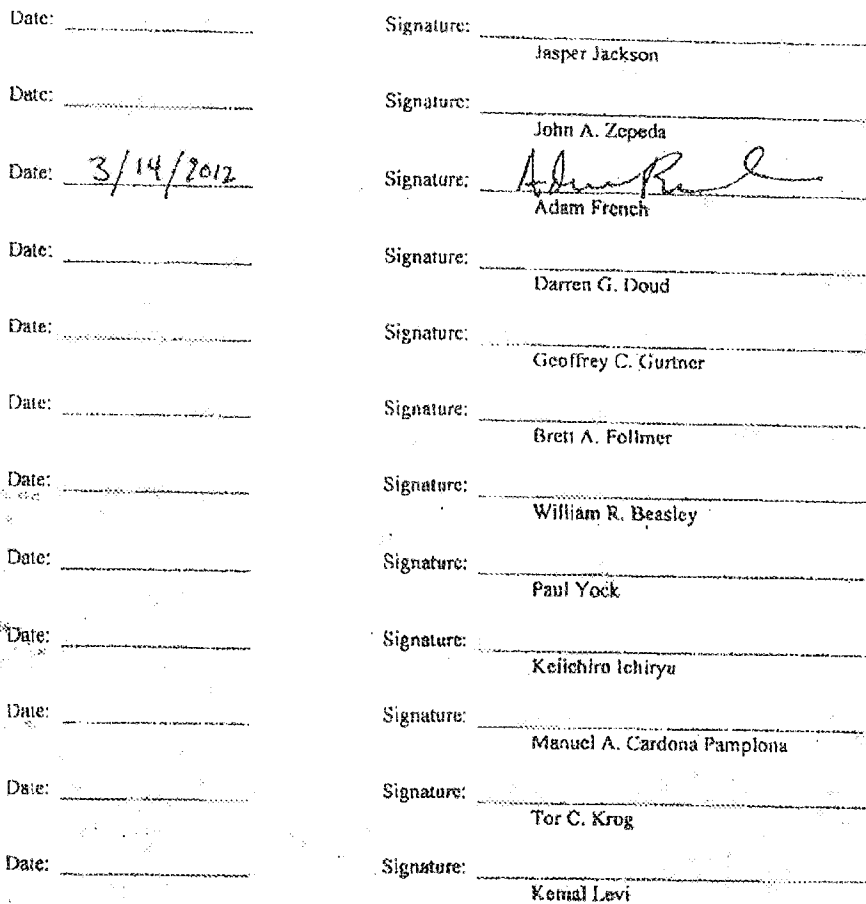 Date: Signature:
Jasper Jackson
Date: Signature:
John A. Zepeda
Date: 3/14/2012 Signature:
Adam French
Date: Signature:
Darren G. Doud
Date: Signature:
Geoffrey C. Gurtner
Date: Signature:
Brett A. Follmer
Date: Signature:
William R. Beasley
Date: Signature:
Paul Yock
Date: Signature:
Keiichiro Ichiryu
Date: Signature:
Manuel A. Cardona Pamplona
Date: Signature:
Tor C. Krog
Date: Signature:
Kemal Levi